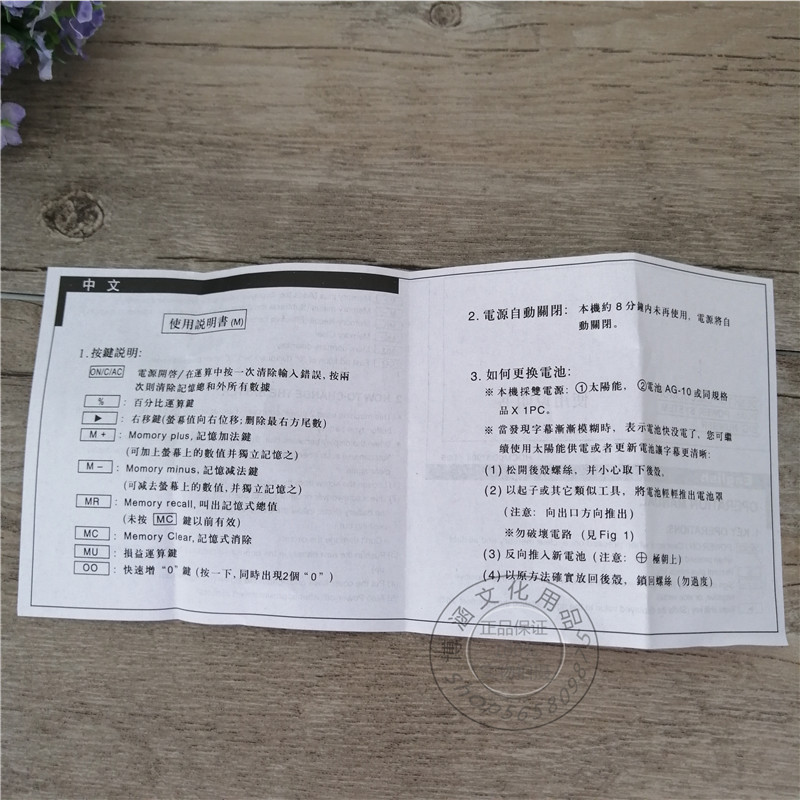 中文
使用説明書(M)
1.按鍵説明:
ON/C/AC 電源開啓/在運算中按一次清除輸入錯誤,按兩
次則清除記憶總和外所有數據
% : 百分比運算鍵
▶ : 右移鍵(螢幕值向右位移;刪除最右方尾數)
M+ : Momory plus,記憶加法鍵
(可加上螢幕上的數值并獨立記憶之)
M− : Momory minus,記憶减法鍵
(可减去螢幕上的數值,并獨立記憶之)
MR : Memory recall,叫出記憶式總值
(未按 MC 鍵以前有效)
MC : Memory Clear,記憶式消除
MU : 損益運算鍵
OO : 快速增“0”鍵(按一下,同時出現2個“0”)
2.電源自動關閉: 本機約8分鐘内未再使用,電源將自
動關閉。
3.如何更换電池:
※本機採雙電源:①太陽能,②電池AG-10或同規格
品X 1PC。
※當發現字幕漸漸模糊時,表示電池快没電了,您可繼
續使用太陽能供電或者更新電池讓字幕更清晰:
(1)松開後殼螺絲,并小心取下後殼。
(2)以起子或其它類似工具,將電池輕輕推出電池罩
(注意:向出口方向推出)
※勿破壞電路(見Fig 1)
(3)反向推入新電池(注意:⊕極朝上)
(4)以原方法確實放回後殼,鎖回螺絲(勿過度)
涵文化用品
正品保证